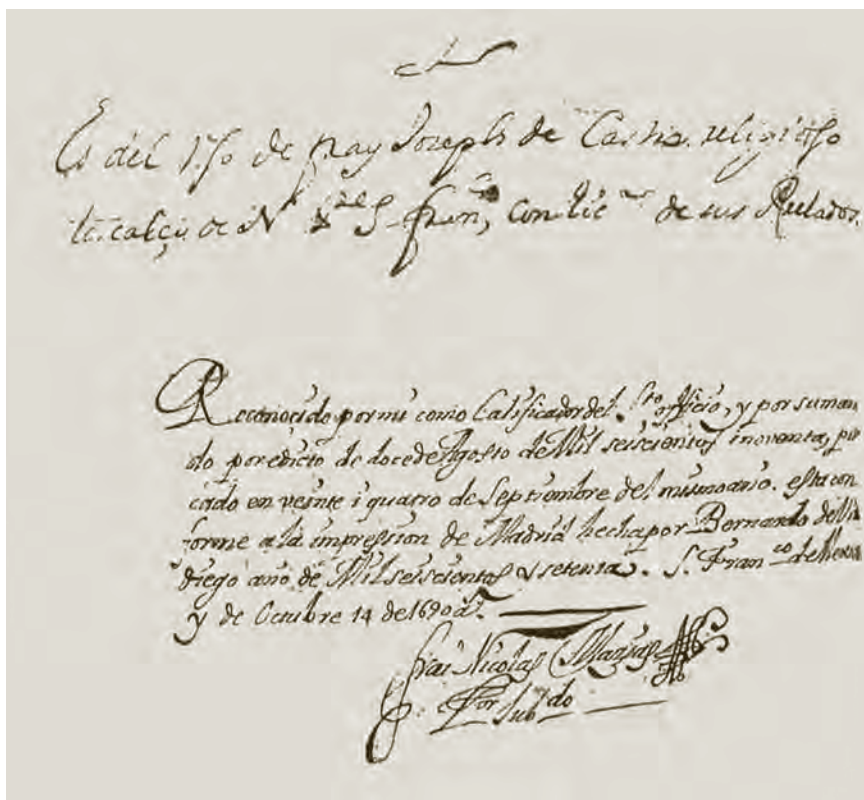 Es del uso de fray Joseph de Castro religioso
de N S. Fran^co, con lic^a de sus Prelados.
Reconocido por mi como Calificador del S^to officio, y por suman
do por edicto de doce de Agosto de Mil seiscientos i noventa, pu
cado en veinte i quatro de Septiembre del mismo año. esta con
forme a la impression de Madrid hecha por Bernardo de Vi
diego año de Mil seiscientos y setenta. S. Fran^co de Mexi
y de Octubre 14 de 1690 a^s.
frai Nicolas Macias
P^or Jub^do